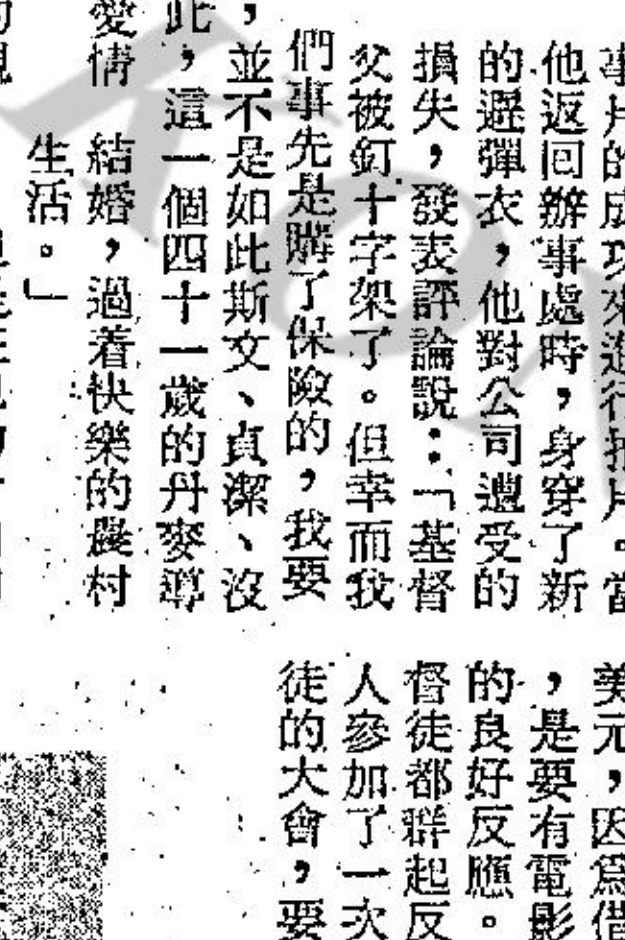 事片的成功來進行拍片。當
他返回辦事處時，身穿了新
的避彈衣，他對公司遭受的
損失，發表評論說：「基督
父被釘十字架了。但幸而我
們事先是購了保險的，我要
，並不是如此斯文、貞潔、沒
此，這一個四十一歲的丹麥導
愛情 結婚，過着快樂的農村
生活。」
美元，因爲借
，是要有電影
的良好反應。
督徒都群起反
人參加了一次
徒的大會，要